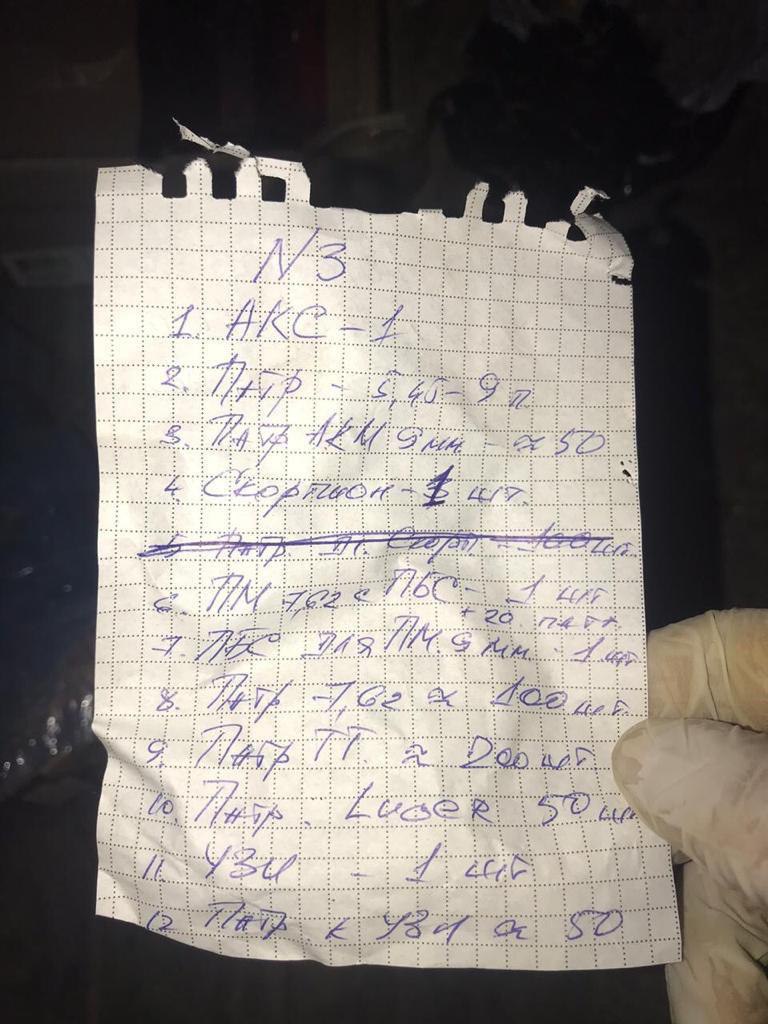 N3
1. АКС - 1
2. Патр - 5,45 - 9 п
3. Патр АКМ 9мм - ≈ 50
4. Скорпион - 1 шт.
5 Патр Скорп - 100 шт.
6. ПМ 7,62 с ПБС - 1 шт
+ 20 патр
7. ПБС для ПМ 9 мм - 1 шт
8. Патр - 7,62 ≈ 100 шт.
9. Патр ТТ. ≈ шт
10. Патр. Luger 50 ш
11. УЗИ - 1 шт
12 Патр к УЗИ ≈ 50